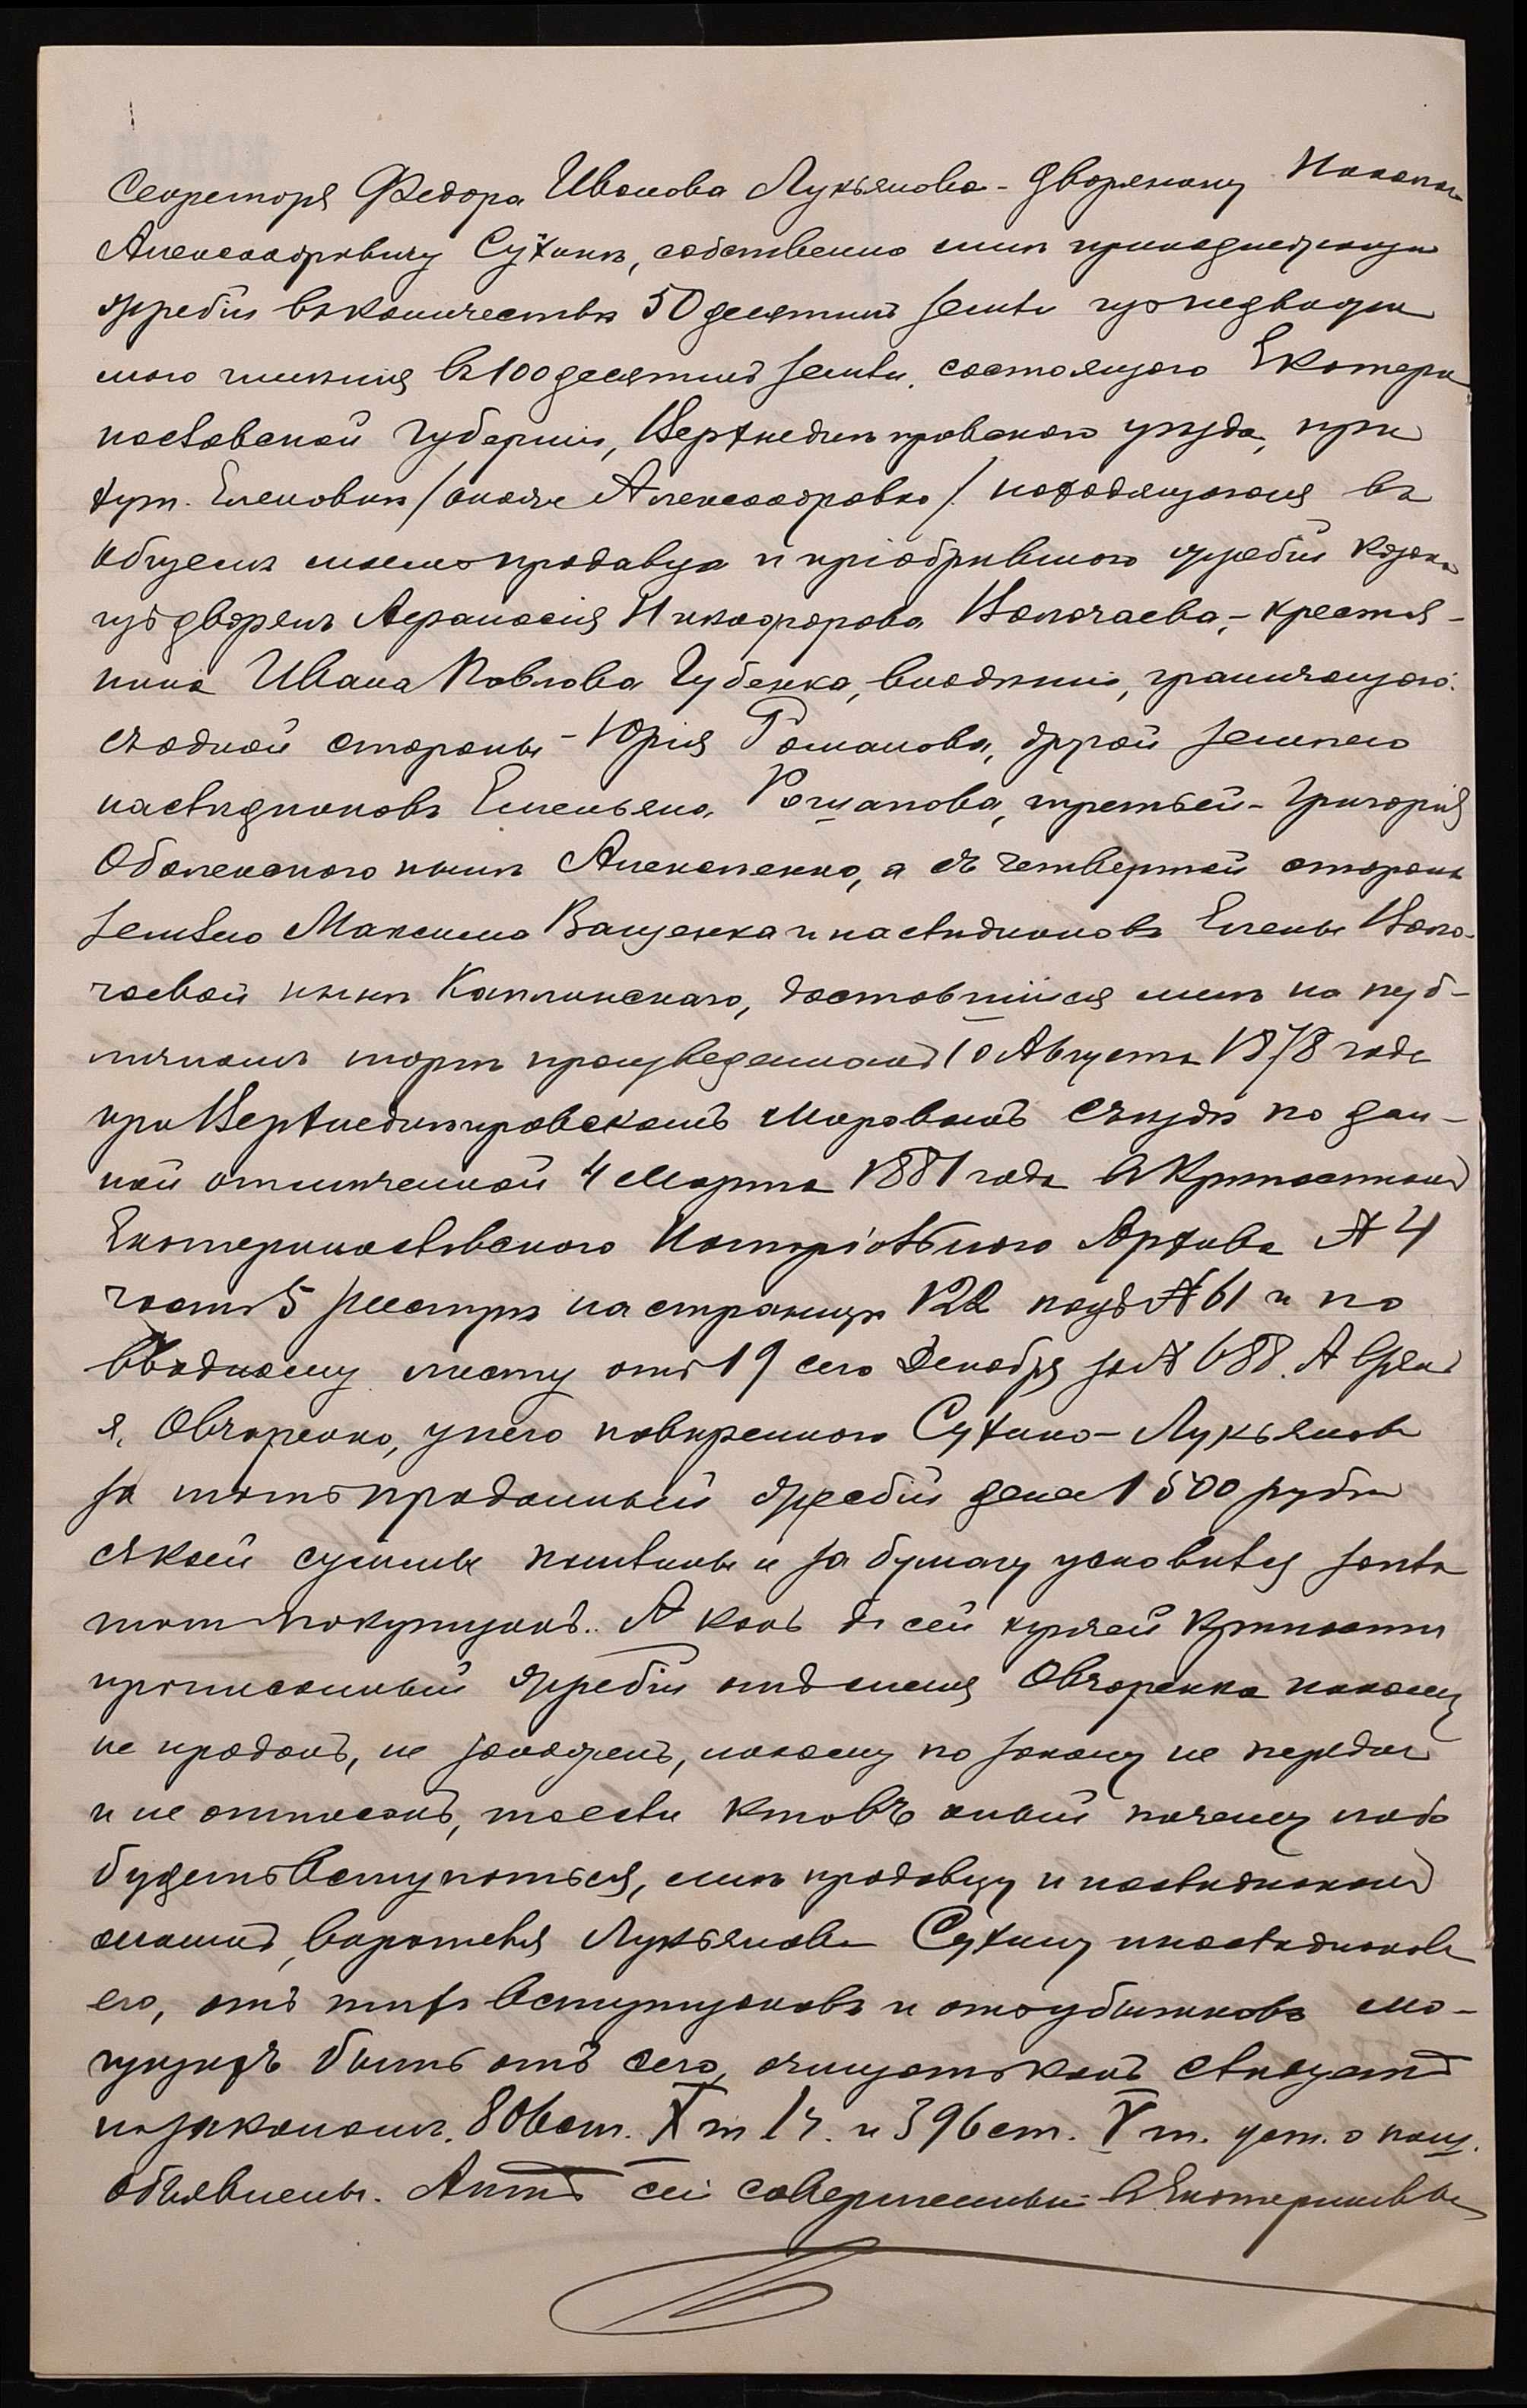 Секретаря Федора Иванова Лукьянова - дворянину
Александровичу Сухину, собственно мнѣ принадлежащій
жребій въ количествѣ 50 десятинъ земли изъ недвижи
маго имѣнія въ 100 десятинъ земли, состоящаго Екатери
нославской губерніи, Верхнеднѣпровскаго уѣзда, при
хут. Еленовкѣ /онаже Александровка/ находящагося въ
общемъ моемъ продавца и пріобрѣвшаго жребій
изъ дворянъ Афанасія Никифорова Волочаева, - крестья-
нина Ивана Павлова Губенка, владѣніи, граничащаго:
съ одной стороны - Юрія Романова, другой землею
наслѣдниковъ Емельяна Романова, третьей - Григорія
Оболенскаго нынѣ Алексѣенко, а съ четвертой стороны
землею Максима Ващенка и наслѣдниковъ Елены Воло-
чаевой нынѣ Каплинскаго, доставшійся мнѣ на пуб-
личномъ торгѣ произведенномъ 10 Августа 1878 года
при Верхнеднѣпровскомъ Мировомъ Съѣздѣ по дан-
ной отмѣченной 4 Марта 1881 года въ Крѣпостномъ
Екатеринославскаго Нотаріальнаго Архива № 4
части 5 реестрѣ на страницѣ 122 подъ № 61 и по
вводному листу отъ 19 сего Декабря за № 688. А взялъ
я, Овчаренко, у него повѣреннаго Сухина - Лукьянова
за тотъ проданный жребій денегъ 1500 рубл
съ коей суммы пошлины и за бумагу условились
покупщикъ. А какъ до сей купчей крѣпости
прописанный жребій отъ меня Овчаренка никому
не проданъ, не заложенъ, никому по закону не переданъ
и не отписанъ, то если кто въ оный почему либо
будетъ вступаться, мнѣ продавцу и наслѣдникамъ
моимъ, его Лукьянова Сухину и наслѣдниковъ
его, отъ тѣхъ вступщиковъ и отъ убытковъ мо-
гущихъ быть отъ сего, очищать какъ слѣдуетъ
по законамъ. 806 ст. X т 1 ч. и 396 ст. V т. уст. о пош.
объявлены. Актъ сей совершенъ въ Екатеринославѣ